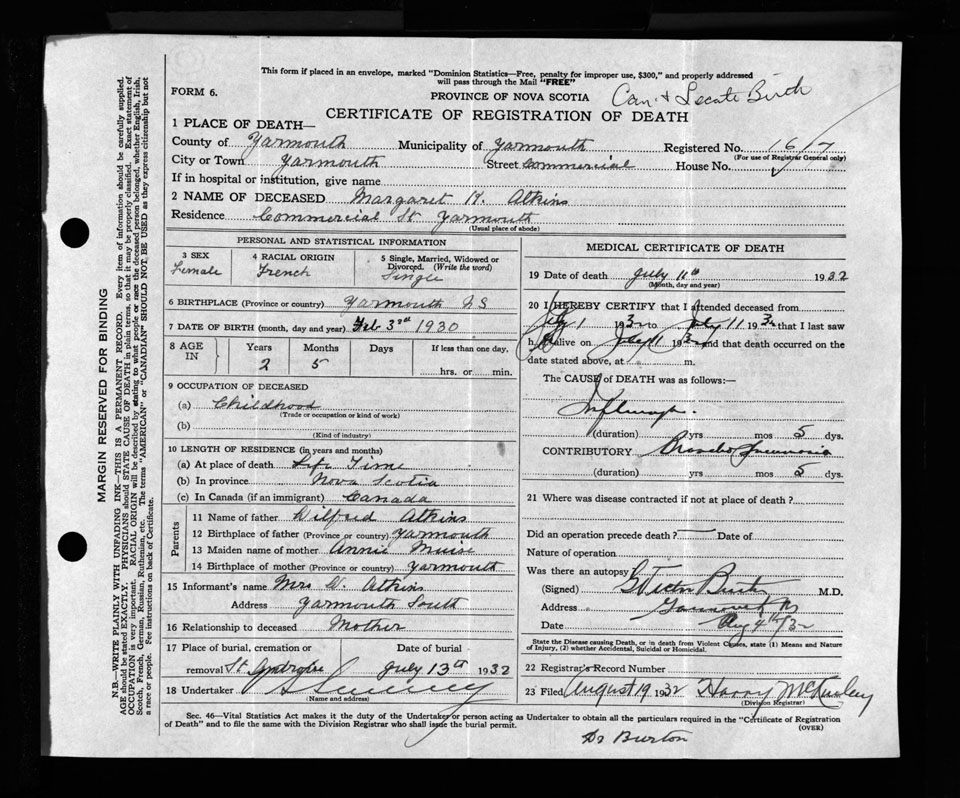 This form if placed in an envelope, marked "Dominion Statistics—Free, penalty for improper use, $300," and properly addressed
will pass through the Mail "FREE"
FORM 6.
PROVINCE OF NOVA SCOTIA
Birch
CERTIFICATE OF REGISTRATION OF DEATH
1 PLACE OF DEATH—
County of Yarmouth Municipality of Yarmouth Registered No. 1617
(For use of Registrar General only)
City or Town Yarmouth Street Commercial House No.
If in hospital or institution, give name
2 NAME OF DECEASED Margaret H. Atkins
Residence Commercial St Yarmouth
(Usual place of abode)
PERSONAL AND STATISTICAL INFORMATION
3 SEX Female
4 RACIAL ORIGIN French
5 Single, Married, Widowed or Divorced. (Write the word) Single
6 BIRTHPLACE (Province or country) Yarmouth N S
7 DATE OF BIRTH (month, day and year) Feb 3rd 1930
8 AGE IN Years 2 Months 5 Days If less than one day. hrs. or min.
9 OCCUPATION OF DECEASED
(a) Childhood
(Trade or occupation or kind of work)
(b)
(Kind of industry)
10 LENGTH OF RESIDENCE (in years and months)
(a) At place of death Life Time
(b) In province Nova Scotia
(c) In Canada (if an immigrant) Canada
Parents
11 Name of father Wilfred Atkins
12 Birthplace of father (Province or country) Yarmouth
13 Maiden name of mother Annie Muise
14 Birthplace of mother (Province or country) Yarmouth
15 Informant's name Mrs W. Atkins
Address Yarmouth South
16 Relationship to deceased Mother
17 Place of burial, cremation or Date of burial
removal St July 13th 1932
18 Undertaker
(Name and address)
MEDICAL CERTIFICATE OF DEATH
19 Date of death July 11th 1932
(Month, day and year)
20 I HEREBY CERTIFY that I attended deceased from
July 1 1932 to July 11 1932 that I last saw
h alive on July 11 1932 and that death occurred on the
date stated above, at m.
The CAUSE of DEATH was as follows:—
(duration) yrs mos 5 dys.
CONTRIBUTORY Broncho Pneumonia
(duration) yrs mos 5 dys.
21 Where was disease contracted if not at place of death?
Did an operation precede death? — Date of
Nature of operation
Was there an autopsy
(Signed) M.D.
Address Yarmouth NS
Date Aug 4th/32
State the Disease causing Death, or in death from Violent Causes, state (1) Means and Nature
of Injury, (2) whether Accidental, Suicidal or Homicidal.
22 Registrar's Record Number
23 Filed August 19 1932 Harry McKinley
(Division Registrar)
Sec. 46—Vital Statistics Act makes it the duty of the Undertaker or person acting as Undertaker to obtain all the particulars required in the "Certificate of Registration
of Death" and to file the same with the Division Registrar who shall issue the burial permit.
(OVER)
Dr Burton
MARGIN RESERVED FOR BINDING
N.B.—WRITE PLAINLY WITH UNFADING INK—THIS IS A PERMANENT RECORD. Every item of information should be carefully supplied.
AGE should be stated EXACTLY. PHYSICIANS should STATE CAUSE OF DEATH in plain terms, so that it may be properly classified. Exact statement of
OCCUPATION is very important. RACIAL ORIGIN will be described by stating to what people or race the deceased person belonged, whether English, Irish,
Scotch, French, German, Russian, Ruthenian, etc. The terms "AMERICAN" or "CANADIAN" SHOULD NOT BE USED as they express citizenship but not
a race or people. See instructions on back of Certificate.